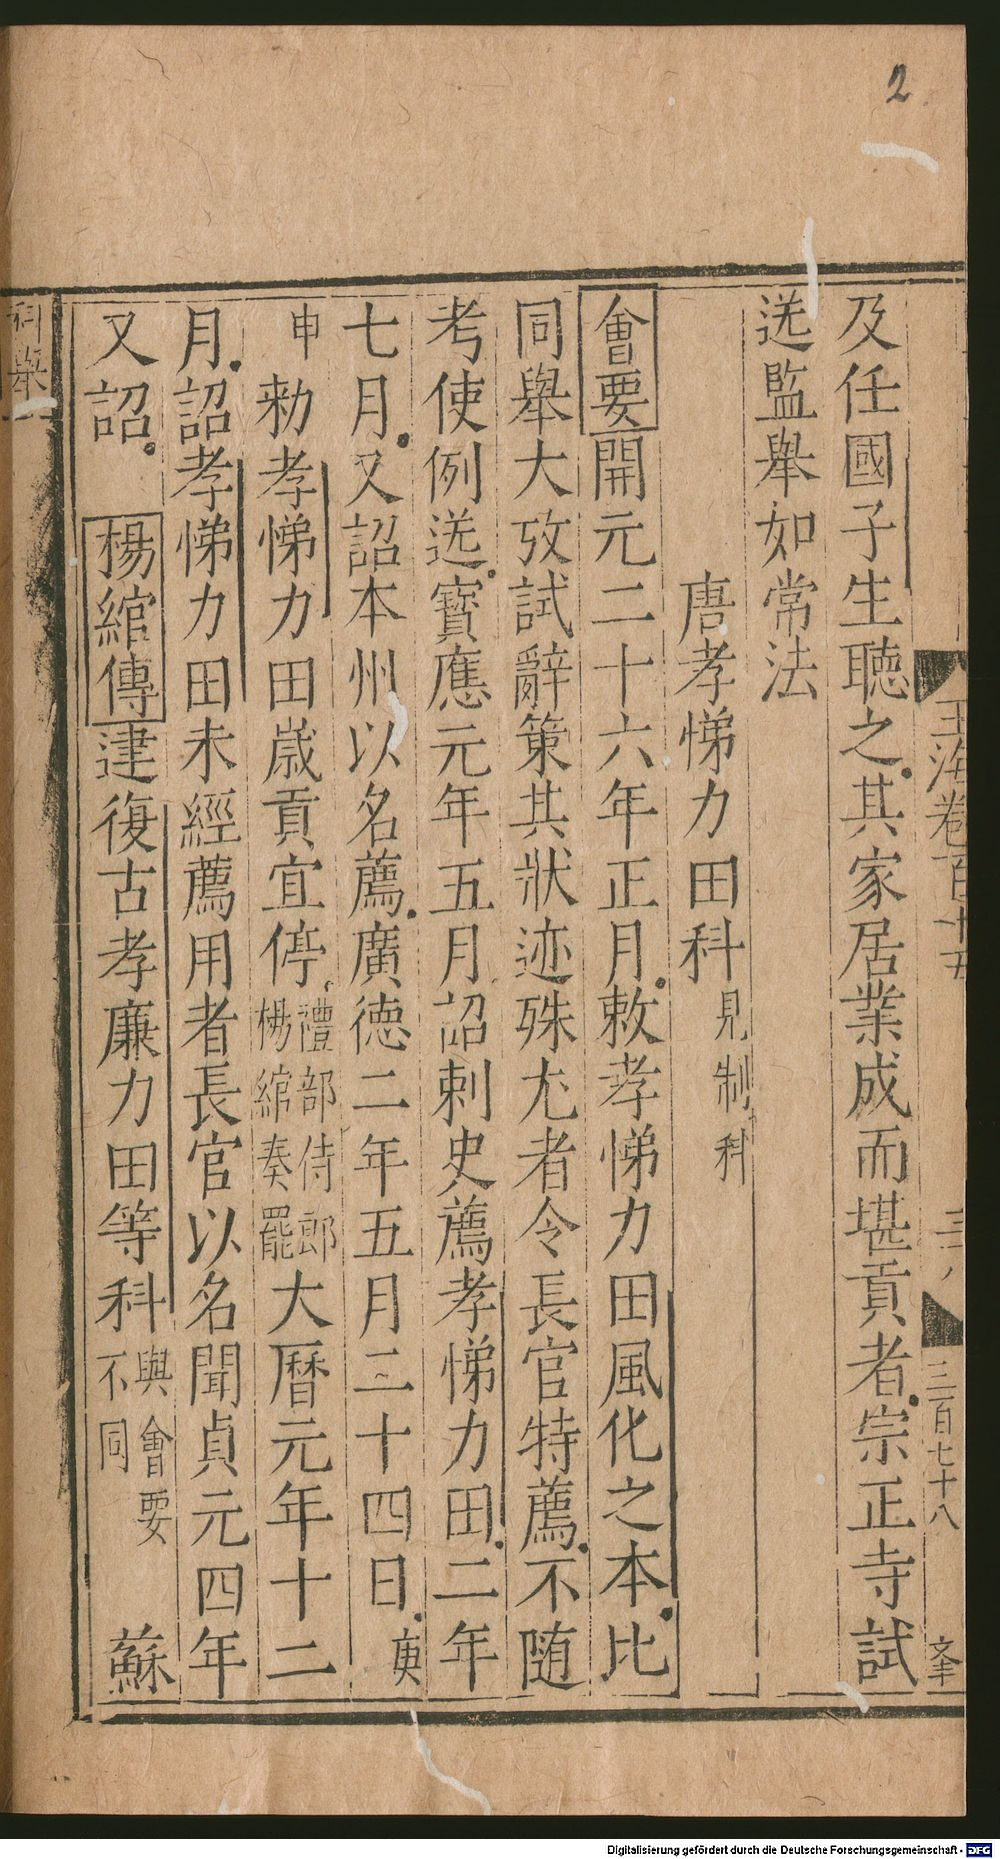 2
玉海卷百十五
三百七十八
及任國子生聽之其家居業成而堪貢者宗正寺試
送監舉如常法
唐孝悌力田科見制科
會要開元二十六年正月敕孝悌力田風化之本比
同舉大攷試辭策其狀迹殊尤者令長官特薦不随
考使例送寳應元年五月詔刺史薦孝悌力田二年
七月又詔本州以名薦廣德二年五月二十四日庚
申勑孝悌力田歳貢宜停禮部侍郎楊綰奏罷大曆元年十二
月詔孝悌力田未經薦用者長官以名聞貞元四年
又詔 楊綰傳建復古孝廉力田等科與會要不同 蘇
科舉
Digitalisierung gefördert durch die Deutsche Forschungsgemeinschaft - DFG